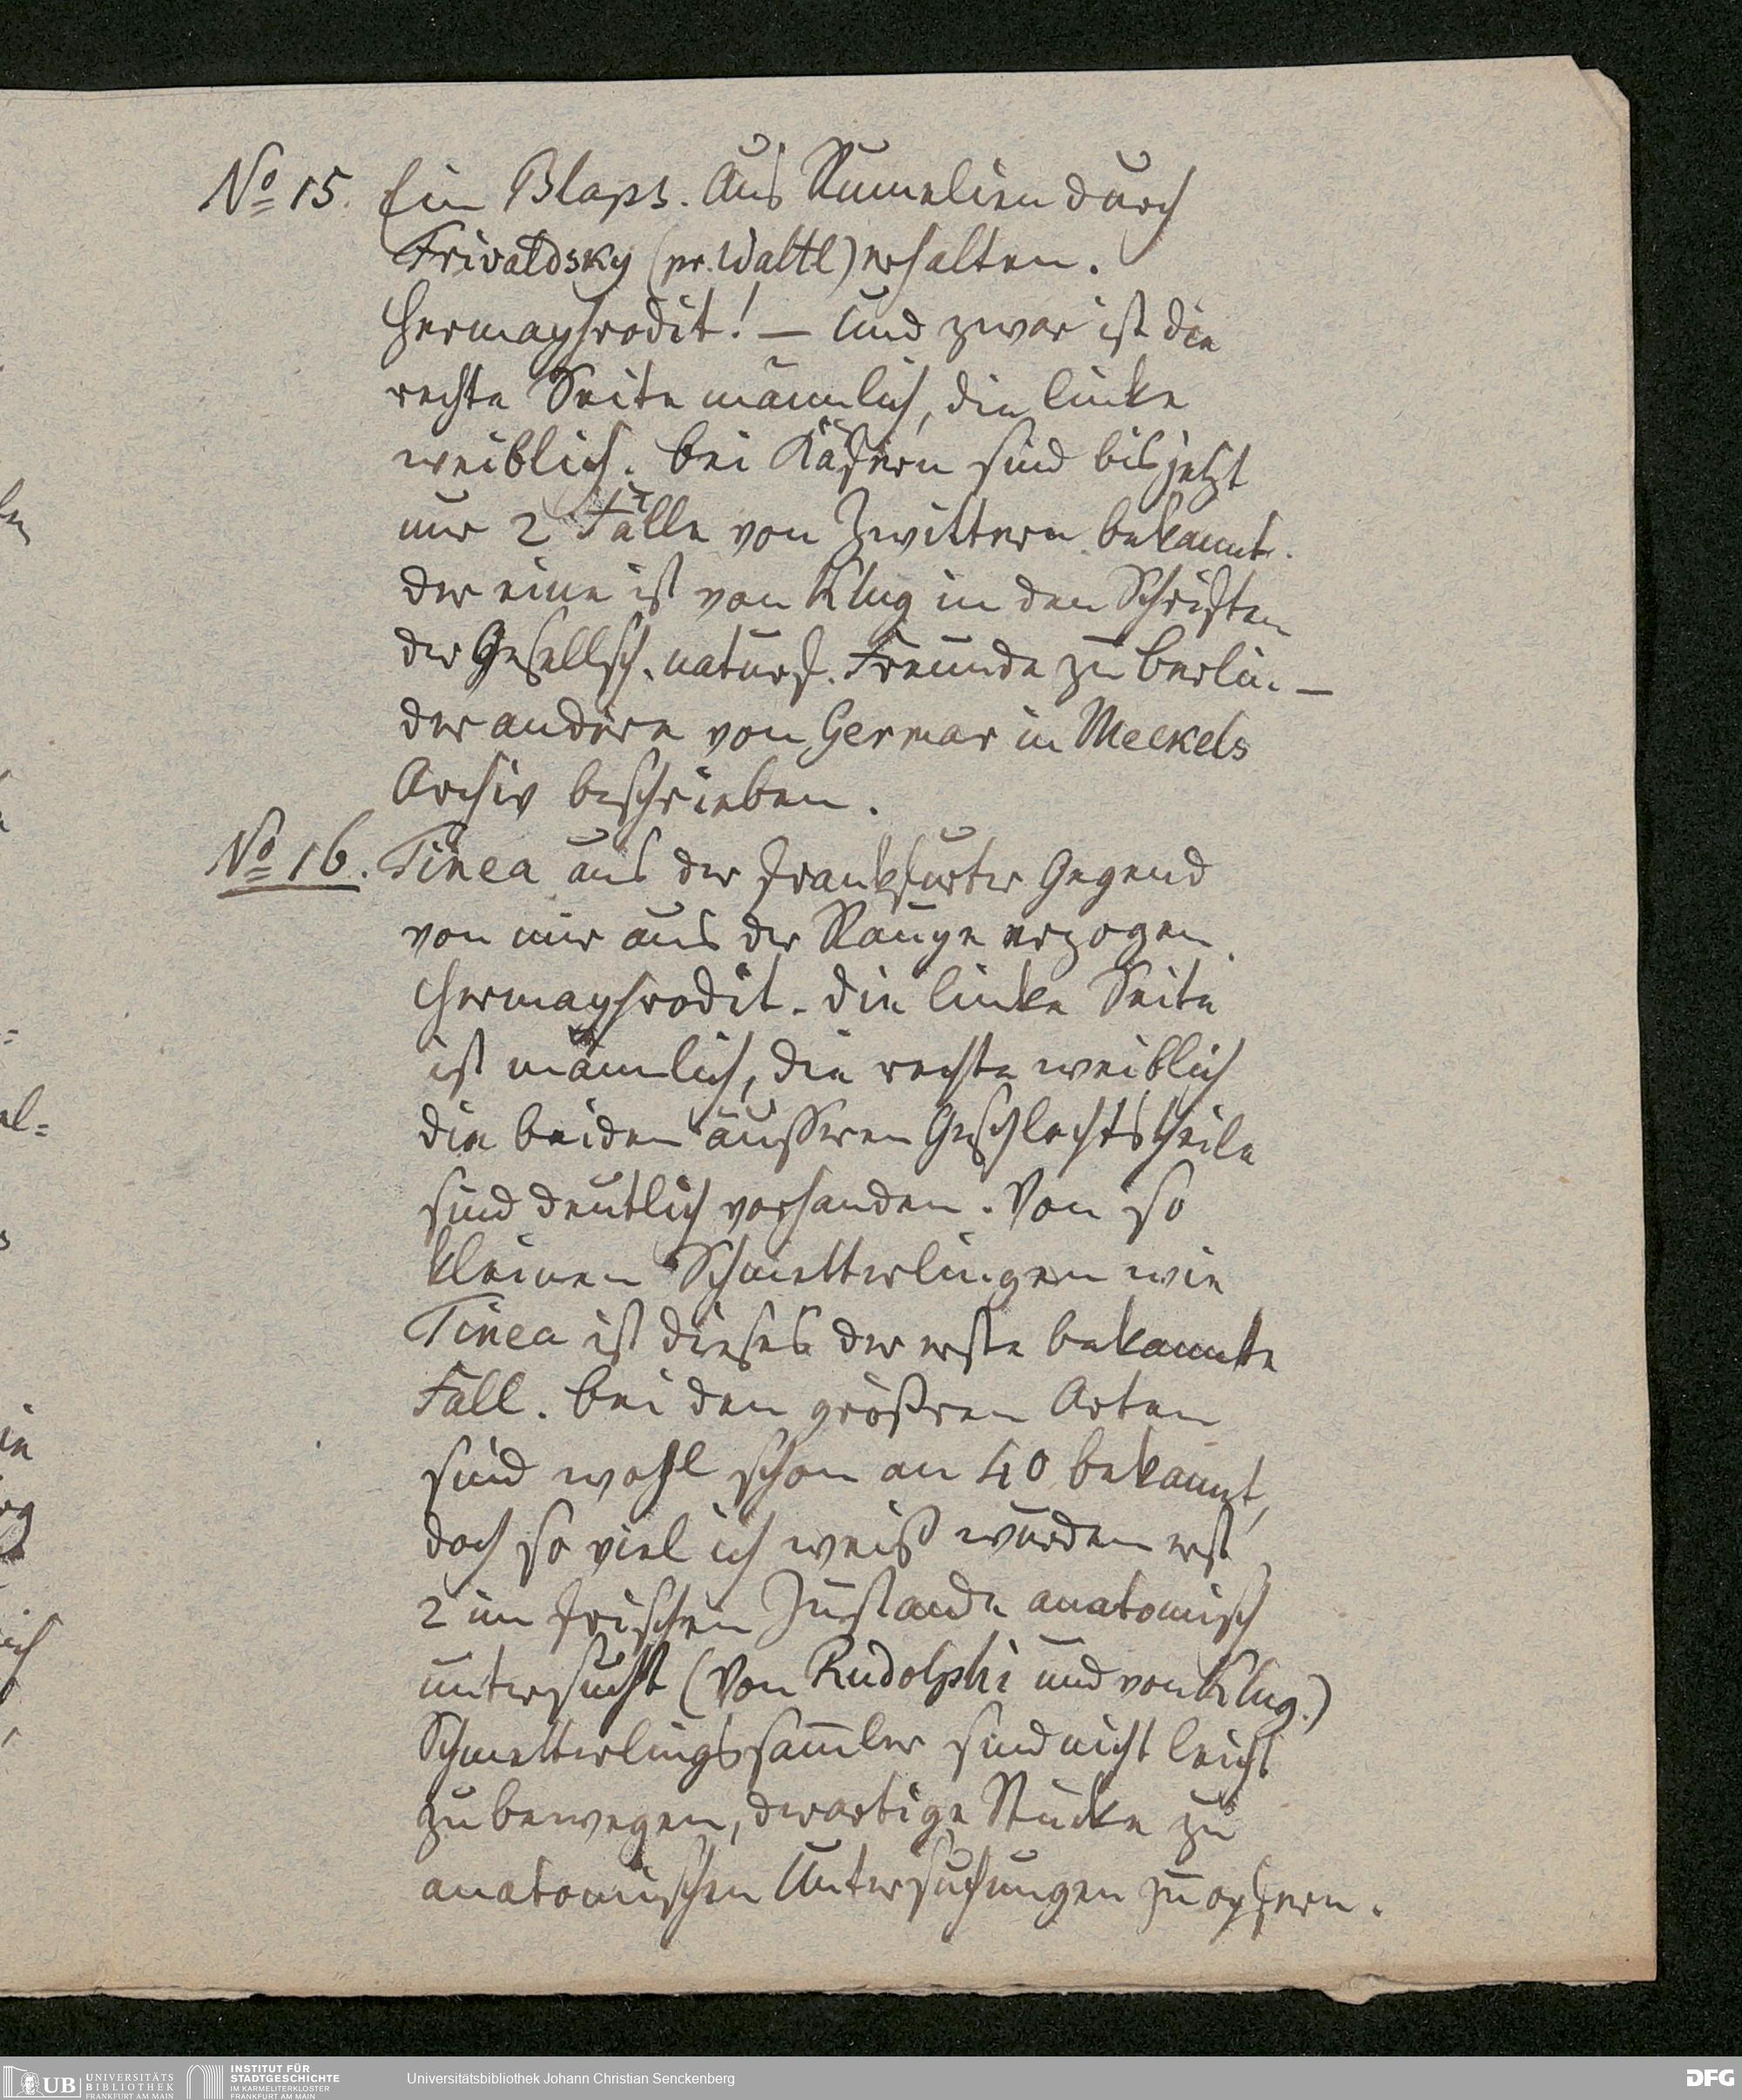 No 15. Ein Blaps. Aus Rumelien durch
Frivaldsky (pr. Waltl) erhalten.
Hermaphrodit! – Und zwar ist die
rechte Seite männlich, die linke
weiblich. Bei Käfern sind bis jetzt
nur 2 Fälle von Zwittern bekannt.
der eine ist von Klug in den Schriften
der Gesellsch. naturf. Freunde zu Berlin. –
der andere von Germar in Meckels
Archiv beschrieben.
No 16. Tinea aus der Frankfurter Gegend
von mir aus der Raupe erzogen.
Hermaphrodit. die linke Seite
ist männlich, die rechte weiblich
die beiden äusseren Geschlechtstheile
sind deutlich vorhanden. Von so
kleinen Schmetterlingen wie
Tinea ist dieses der erste bekannte
Fall. Bei den größren Arten
sind wohl schon an 40 bekannt,
doch so viel ich weiß wurden erst
2 im frischen Zustande anatomisch
untersucht (Von Rudolphi und von Klug.)
Schmetterlingssam̄ler sind nicht leicht
zu bewegen, derartige Stücke zu
anatomischen Untersuchungen zu opfern.
en
el=
s
in
rg
ich
UB UNIVERSITÄTS BIBLIOTHEK FRANKFURT AM MAIN
INSTITUT FÜR STADTGESCHICHTE IM KARMELITERKLOSTER FRANKFURT AM MAIN
Universitätsbibliothek Johann Christian Senckenberg
DFG